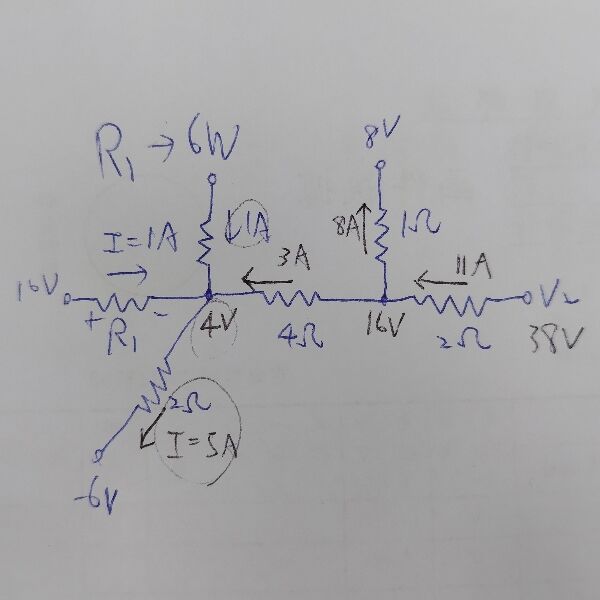 R₁ → 6W
8V
I=1A
↓1A
8A
1Ω
3A
11A
16V
+ R₁ -
4V
4Ω
16V
2Ω
V₂
38V
2Ω
I=5A
-6V